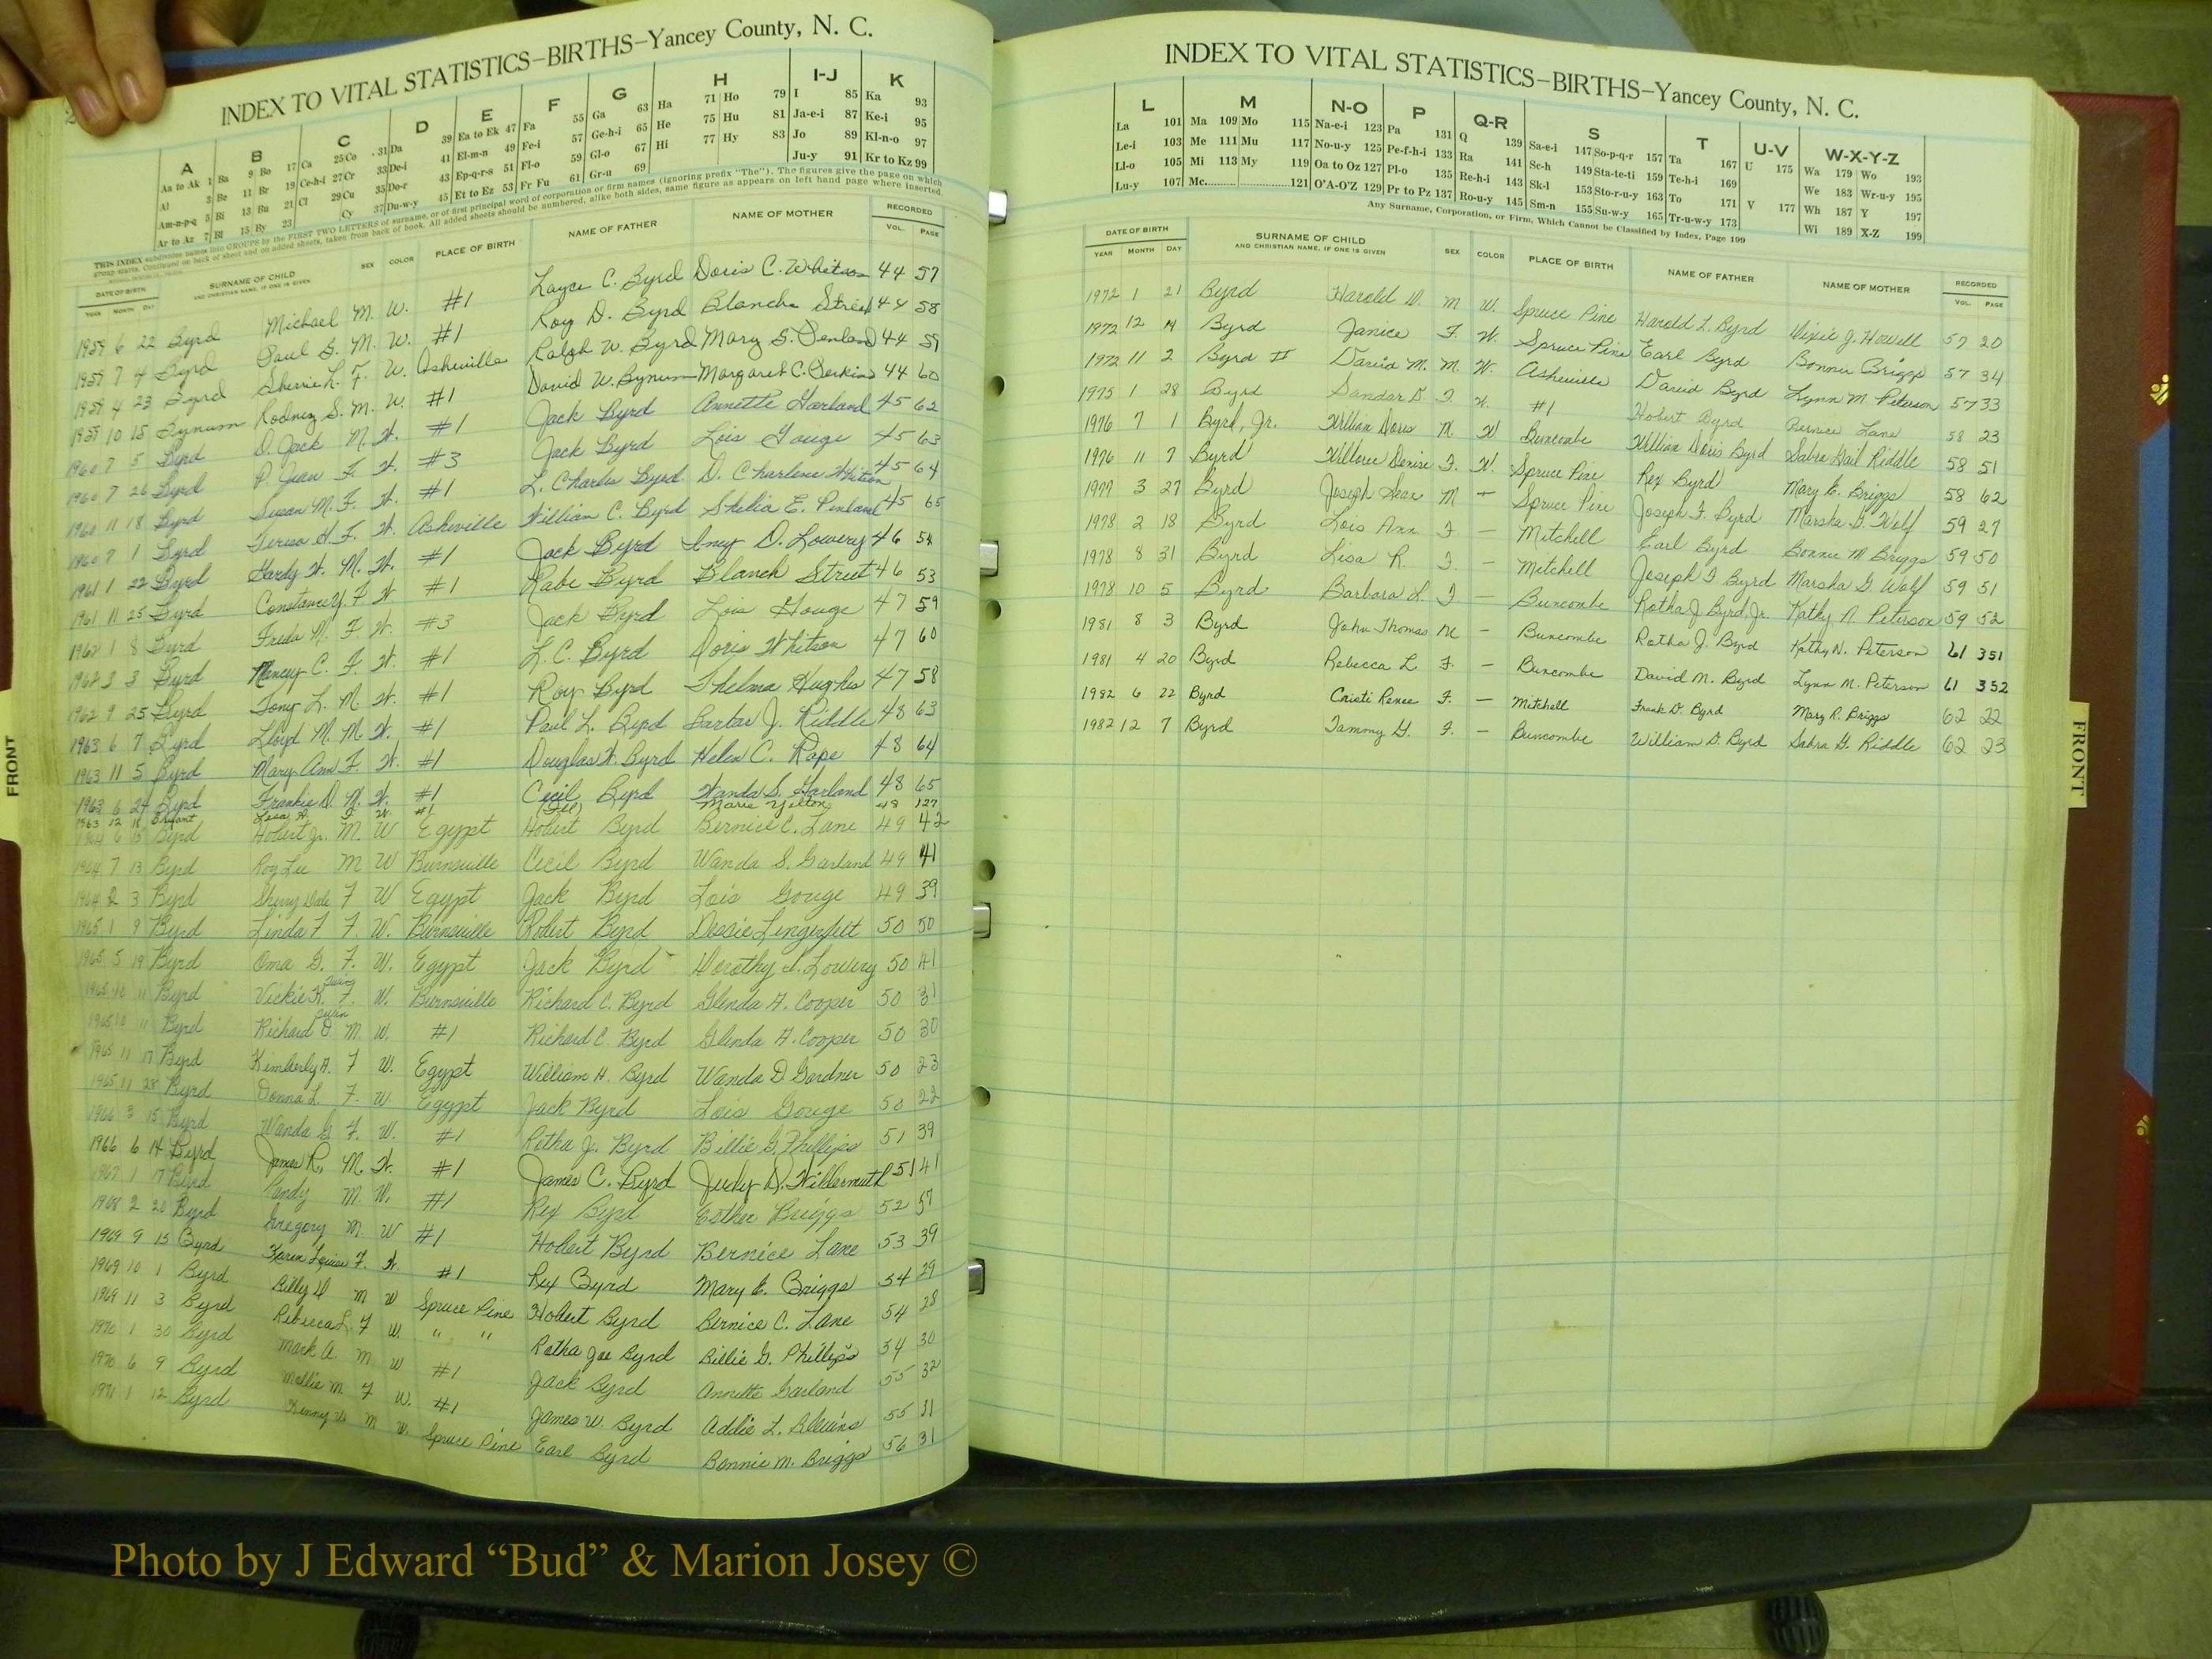 INDEX TO VITAL STATISTICS–BIRTHS–Yancey County, N. C.
A B C D E F G H I-J K
Aa to Ak 1 Ba 9 Bo 17 Ca 25 Co 31 Da 39 Ea to Ek 47 Fa 55 Ga 63 Ha 71 Ho 79 I 85 Ka 93
Al 3 Be 11 Br 19 Ce-h-i 27 Cr 33 De-i 41 El-m-n 49 Fe-i 57 Ge-h-i 65 He 75 Hu 81 Ja-e-i 87 Ke-i 95
Am-n-p-q 5 Bi 13 Bu 21 Cl 29 Cu 35 Do-r 43 Ep-q-r-s 51 Fl-o 59 Gl-o 67 Hi 77 Hy 83 Jo 89 Kl-n-o 97
Ar to Az 7 Bl 15 By 23 Cy 37 Du-w-y 45 Et to Ez 53 Fr Fu 61 Gr-u 69 Ju-y 91 Kr to Kz 99
THIS INDEX subdivides names into GROUPS by the FIRST TWO LETTERS of surname, or of first principal word of corporation or firm names (ignoring prefix "The"). The figures give the page on which
group starts. Continued on back of sheet and on added sheets, taken from back of book. All added sheets should be numbered, alike both sides, same figure as appears on left hand page where inserted.
DATE OF BIRTH SURNAME OF CHILD SEX COLOR PLACE OF BIRTH NAME OF FATHER NAME OF MOTHER RECORDED
YEAR MONTH DAY AND CHRISTIAN NAME, IF ONE IS GIVEN VOL. PAGE
1959 6 22 Byrd Michael M. W. #1 Layce C. Byrd Doris C. Whitson 44 57
1959 7 4 Byrd Paul G. M. W. #1 Roy D. Byrd Blanche Street 44 58
1959 4 23 Byrd Sherrie L. F. W. Asheville Ralph W. Byrd Mary S. Penland 44 59
1959 10 15 Bynum Rodney S. M. W. #1 David W. Bynum Margaret C. Perkins 44 60
1960 7 5 Byrd D. Jack M. W. #1 Jack Byrd Annette Garland 45 62
1960 7 26 Byrd P. Juan F. W. #3 Jack Byrd Lois Gouge 45 63
1960 11 18 Byrd Susan M. F. W. #1 L. Charles Byrd D. Charlene Whitson 45 64
1960 7 1 Byrd Teresa H. F. W. Asheville William C. Byrd Shelia E. Penland 45 65
1961 1 22 Byrd Hardy W. M. W. #1 Jack Byrd D. Lowery 46 54
1961 11 25 Byrd Constance Y. F. W. #1 Rabe Byrd Blanch Street 46 53
1962 1 8 Byrd Freda M. F. W. #3 Jack Byrd Lois Gouge 47 59
1962 3 3 Byrd Nancy C. F. W. #1 L. C. Byrd Doris Whitson 47 60
1962 9 25 Byrd Tony L. M. W. #1 Roy Byrd Thelma Hughes 47 58
1963 6 7 Byrd Lloyd M. M. W. #1 Paul L. Byrd Barbar J. Riddle 48 63
1963 11 5 Byrd Mary Ann F. W. #1 Douglas W. Byrd Helen C. Rape 48 64
1963 6 24 Byrd Frankie D. M. W. #1 Cecil Byrd Wanda S. Garland 48 65
1963 12 Bryant Lisa F W. #1 Marie Yelton 48 127
1964 6 15 Byrd Hobert Jr. M. W Egypt Hobert Byrd Bernice C. Lane 49 42
1964 7 13 Byrd Roy Lee M W Burnsville Cecil Byrd Wanda S. Garland 49 41
1964 2 3 Byrd Sherry Dale F W Egypt Jack Byrd Lois Gouge 49 39
1965 1 9 Byrd Linda F F. W. Burnsville Robert Byrd Dessie Lingerfelt 50 50
1965 5 19 Byrd Oma G. F. W. Egypt Jack Byrd Dorothy I. Lowery 50 41
1965 10 11 Byrd Vickie K. Twin F. W. Burnsville Richard C. Byrd Glenda A. Cooper 50 31
1965 10 11 Byrd Richard O Twin M. W. #1 Richard C. Byrd Glenda A. Cooper 50 30
1965 11 17 Byrd Kimberly A. F W. Egypt William H. Byrd Wanda D Gardner 50 23
1965 11 28 Byrd Donna L. F. W Egypt Jack Byrd Lois Gouge 50 22
1966 3 15 Byrd Wanda G F. W. #1 Rotha J. Byrd Billie G. Phillips 51 39
1966 6 14 Byrd James R. M. W. #1 James C. Byrd Judy D. Willermuth 51 41
1967 1 17 Byrd Randy M. W. #1 Rex Byrd Esther Briggs 52 57
1968 2 20 Byrd Gregory M W #1 Hobert Byrd Bernice Lane 53 39
1969 9 15 Byrd Karen Louise F. W. #1 Rex Byrd Mary E. Briggs 54 29
1969 10 1 Byrd Billy D M W Spruce Pine Hobert Byrd Bernice C. Lane 54 28
1969 11 3 Byrd Rebecca L. F W. " " Rotha Joe Byrd Billie G. Phillips 54 30
1970 1 30 Byrd Mark A. M W #1 Jack Byrd Annette Garland 55 32
1970 6 9 Byrd Mollie M F W. #1 James W. Byrd Addie L. 55 31
1971 1 12 Byrd Kenny M W. Spruce Pine Earl Byrd Bonnie M. Briggs 56 31
FRONT
INDEX TO VITAL STATISTICS–BIRTHS–Yancey County, N. C.
L M N-O P Q-R S T U-V W-X-Y-Z
La 101 Ma 109 Mo 115 Na-e-i 123 Pa 131 Q 139 Sa-e-i 147 So-p-q-r 157 Ta 167 U 175 Wa 179 Wo 193
Le-i 103 Me 111 Mu 117 No-u-y 125 Pe-f-h-i 133 Ra 141 Sc-h 149 Sta-te-ti 159 Te-h-i 169 We 183 Wr-u-y 195
Ll-o 105 Mi 113 My 119 Oa to Oz 127 Pl-o 135 Re-h-i 143 Sk-l 153 Sto-r-u-y 163 To 171 V 177 Wh 187 Y 197
Lu-y 107 Mc 121 O'A-O'Z 129 Pr to Pz 137 Ro-u-y 145 Sm-n 155 Su-w-y 165 Tr-u-w-y 173 Wi 189 X-Z 199
Any Surname, Corporation, or Firm, Which Cannot be Classified by Index, Page 199
DATE OF BIRTH SURNAME OF CHILD SEX COLOR PLACE OF BIRTH NAME OF FATHER NAME OF MOTHER RECORDED
YEAR MONTH DAY AND CHRISTIAN NAME, IF ONE IS GIVEN VOL. PAGE
1972 1 21 Byrd Harold D. M W. Spruce Pine Harold L. Byrd Dixie J. Howell 57 20
1972 12 14 Byrd Janice F. W. Spruce Pine Earl Byrd Bonnie Briggs 57 34
1972 11 2 Byrd II David M. M. W. Asheville David Byrd Lynn M. Peterson 57 33
1975 1 28 Byrd Sandar D. F. W. #1 Hobert Byrd Bernice Lane 58 23
1976 7 1 Byrd, Jr. William Doris M. W Buncombe William Doris Byrd Sabra Gail Riddle 58 51
1976 11 7 Byrd Denise F. W. Spruce Pine Rex Byrd Mary E. Briggs 58 62
1977 3 27 Byrd Joseph Sean M — Spruce Pine Joseph F. Byrd Marsha G. Wolf 59 27
1978 2 18 Byrd Lois Ann F — Mitchell Earl Byrd Bonnie M Briggs 59 50
1978 8 31 Byrd Lisa R. F. — Mitchell Joseph F Byrd Marsha G. Wolf 59 51
1978 10 5 Byrd Barbara L. F — Buncombe Rotha J Byrd, Jr. Kathy N. Peterson 59 52
1981 8 3 Byrd John Thomas M — Buncombe Rotha J. Byrd Kathy N. Peterson 61 351
1981 4 20 Byrd Rebecca L. F. — Buncombe David M. Byrd Lynn M. Peterson 61 352
1982 6 22 Byrd Cristi Renee F. — Mitchell Frank D. Byrd Mary R. Briggs 62 22
1982 12 7 Byrd Tammy G. F. — Buncombe William D. Byrd Sabra G. Riddle 62 23
FRONT
Photo by J Edward “Bud” & Marion Josey ©